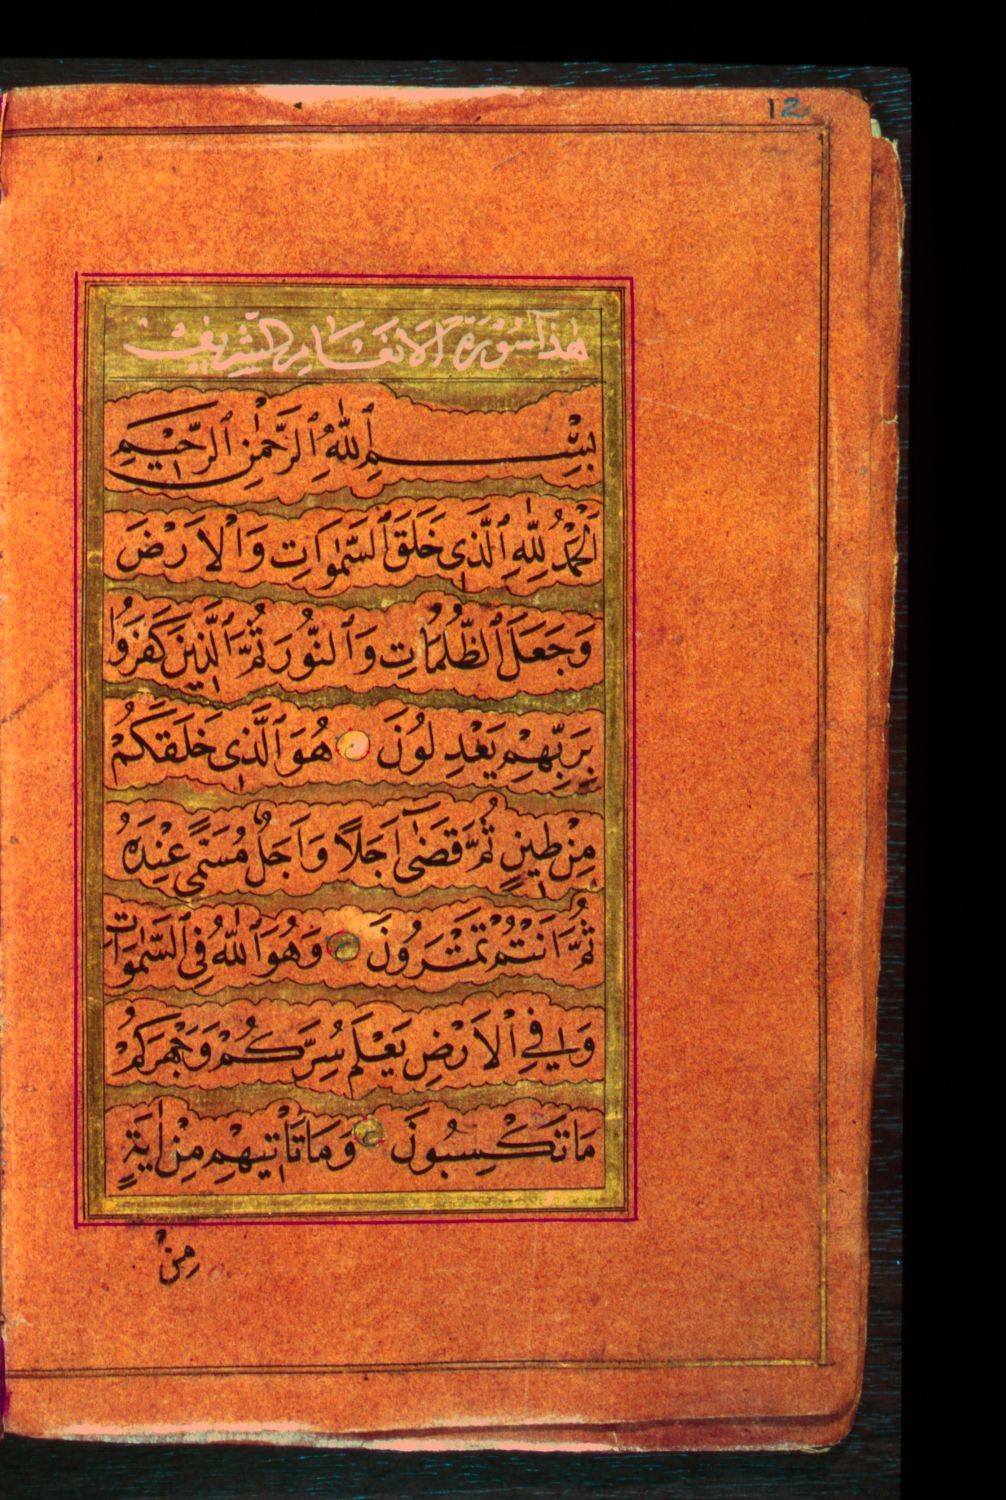 12
هٰذا سُوْرَةُ الْاَنْعَامِ الشَّرِيفِ
بِسْمِ اللّٰهِ الرَّحْمٰنِ الرَّحٖيمِ
اَلْحَمْدُ لِلّٰهِ الَّذٖى خَلَقَ السَّمٰوَاتِ وَالْاَرْضَ
وَجَعَلَ الظُّلُمَاتِ وَالنُّورَ ثُمَّ الَّذٖينَ كَفَرُوا
بِرَبِّهِمْ يَعْدِلُونَ هُوَ الَّذٖى خَلَقَكُمْ
مِنْ طٖينٍ ثُمَّ قَضٰٓى اَجَلًا وَاَجَلٌ مُسَمًّى عِنْدَهُ
ثُمَّ اَنْتُمْ تَمْتَرُونَ وَهُوَ اللّٰهُ فِى السَّمٰوَاتِ
وَفِي الْاَرْضِ يَعْلَمُ سِرَّكُمْ وَجَهْرَكُمْ
مَا تَكْسِبُونَ وَمَا تَاْتٖيهِمْ مِنْ اٰيَةٍ
مِنْ